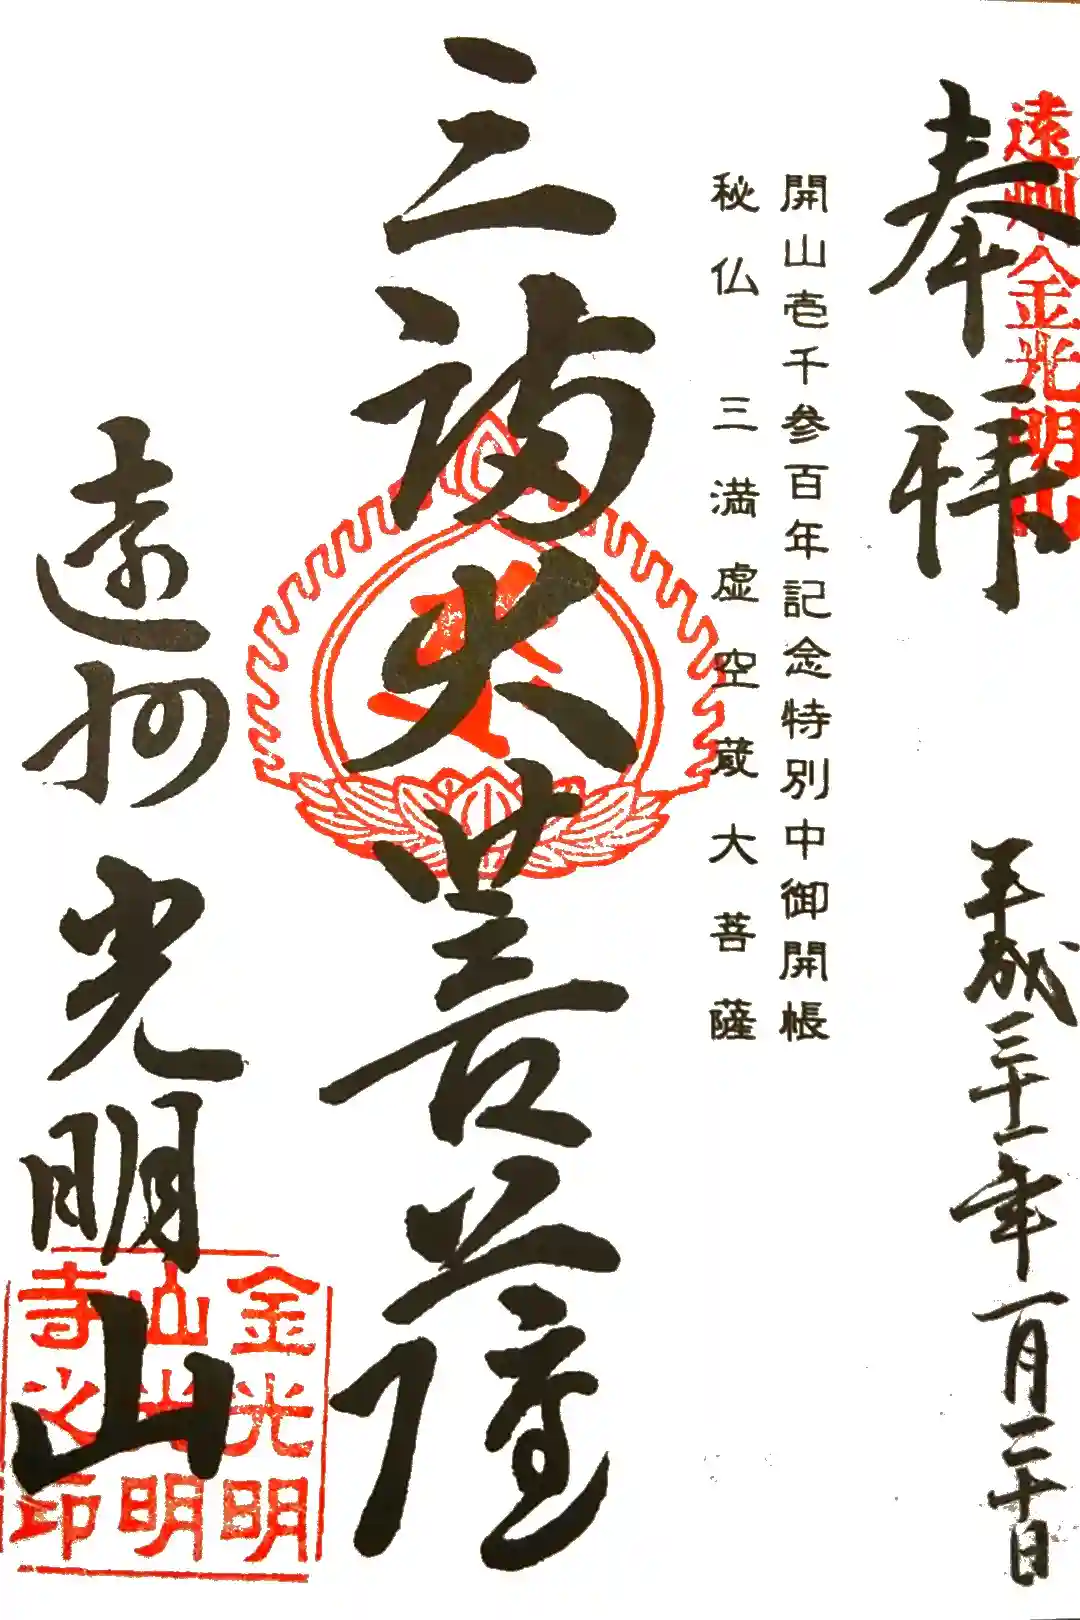 遠州金光明山
奉拝
平成三十一年一月二十日
開山壱千参百年記念特別中御開帳
秘仏 三満虚空蔵大菩薩
三満大菩薩
遠州 光明山
金光明
山光明
寺之印